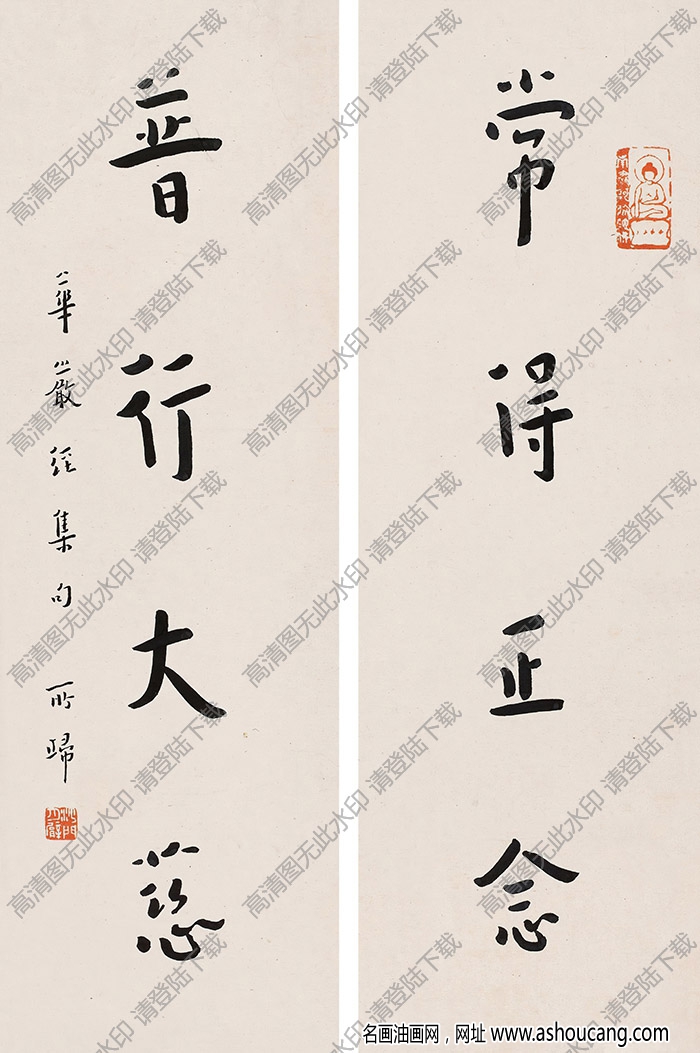 常得正念
普行大慈
華嚴經集句 所歸
沙門
高清图无此水印 请登陆下载
名画油画网，网址 www.ashoucang.com